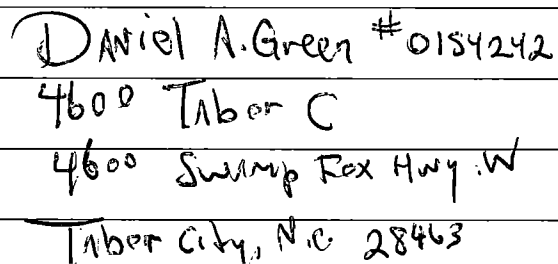 Daniel A. Green #0154242
4600 Tabor C
4600 Swamp Fox Hwy. W
Tabor City, N.C. 28463